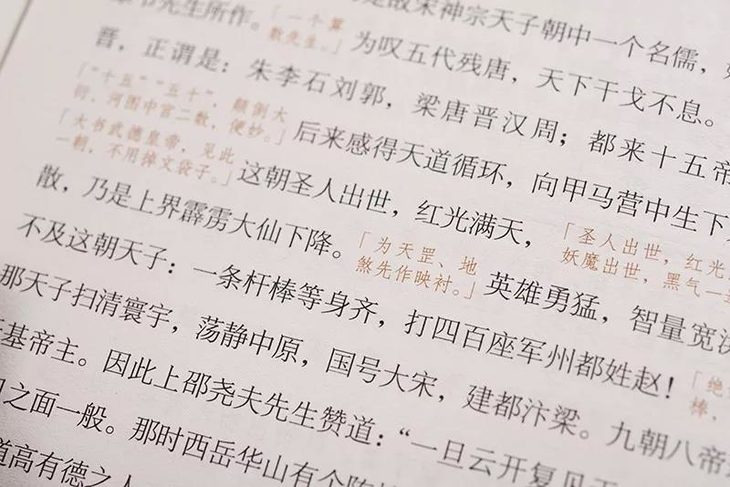 是故宋神宗天子朝中一个名儒，
先生所作。「一个算数先生。」为叹五代残唐，天下干戈不息。
晋，正谓是：朱李石刘郭，梁唐晋汉周；都来十五帝
「“十五”“五十”，颠倒大衍，河图中宫二数，便妙。」后来感得天道循环，向甲马营中生下
「大书武德皇帝，见此一朝，不用掉文袋子。」这朝圣人出世，红光满天，「圣人出世，红光 妖魔出世，黑气一
散，乃是上界霹雳大仙下降。「为天罡、地煞先作映衬。」英雄勇猛，智量宽
不及这朝天子：一条杆棒等身齐，打四百座军州都姓赵！「绝 棒，
那天子扫清寰宇，荡静中原，国号大宋，建都汴梁。九朝八帝
基帝主。因此上邵尧夫先生赞道：“一旦云开复见天
之面一般。那时西岳华山有个陈
道高有德之人